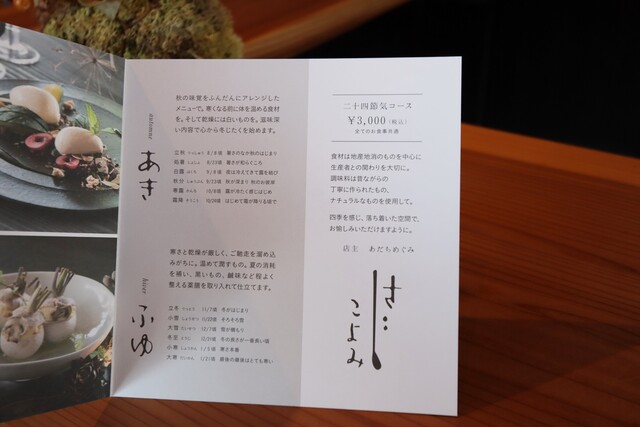 autumn
あき
秋の味覚をふんだんにアレンジした
メニューで。寒くなる前に体を温める食材
を。そして乾燥には白いものを。滋味深
い内容で心から冬じたくを始めます。
立秋 りっしゅう 8/8頃 暑さのなか秋のはじまり
処暑 しょしょ 8/23頃 暑さが和らぐころ
白露 はくろ 9/8頃 夜は冷えてきて露を結び
秋分 しゅうぶん 9/23頃 秋が深まり 秋のお彼岸
寒露 かんろ 10/8頃 露が冷たく感じはじめ
霜降 そうこう 10/24頃 はじめて霜が降りる頃で
ふゆ
寒さと乾燥が厳しく、ご馳走を溜め込
みがちに。温めて潤すもの。夏の消耗
を補い、黒いもの、鹹味など程よく
整える薬膳を取り入れて仕立てます。
立冬 りっとう 11/7頃 冬がはじまり
小雪 しょうせつ 11/22頃 そろそろ雪
大雪 たいせつ 12/7頃 雪が積もり
冬至 とうじ 12/21頃 冬の長さが一番長い頃
小寒 しょうかん 1/5頃 寒さ本番
大寒 だいかん 1/21頃 最後の最後はとても寒い
二十四節気コース
¥3,000(税込)
全てのお食事共通
食材は地産地消のものを中心に
生産者との関わりを大切に。
調味料は昔ながらの
丁寧に作られたもの、
ナチュラルなものを使用して。
四季を感じ、落ち着いた空間で、
お愉しみいただけますように。
店主 あだちめぐみ
こよみ